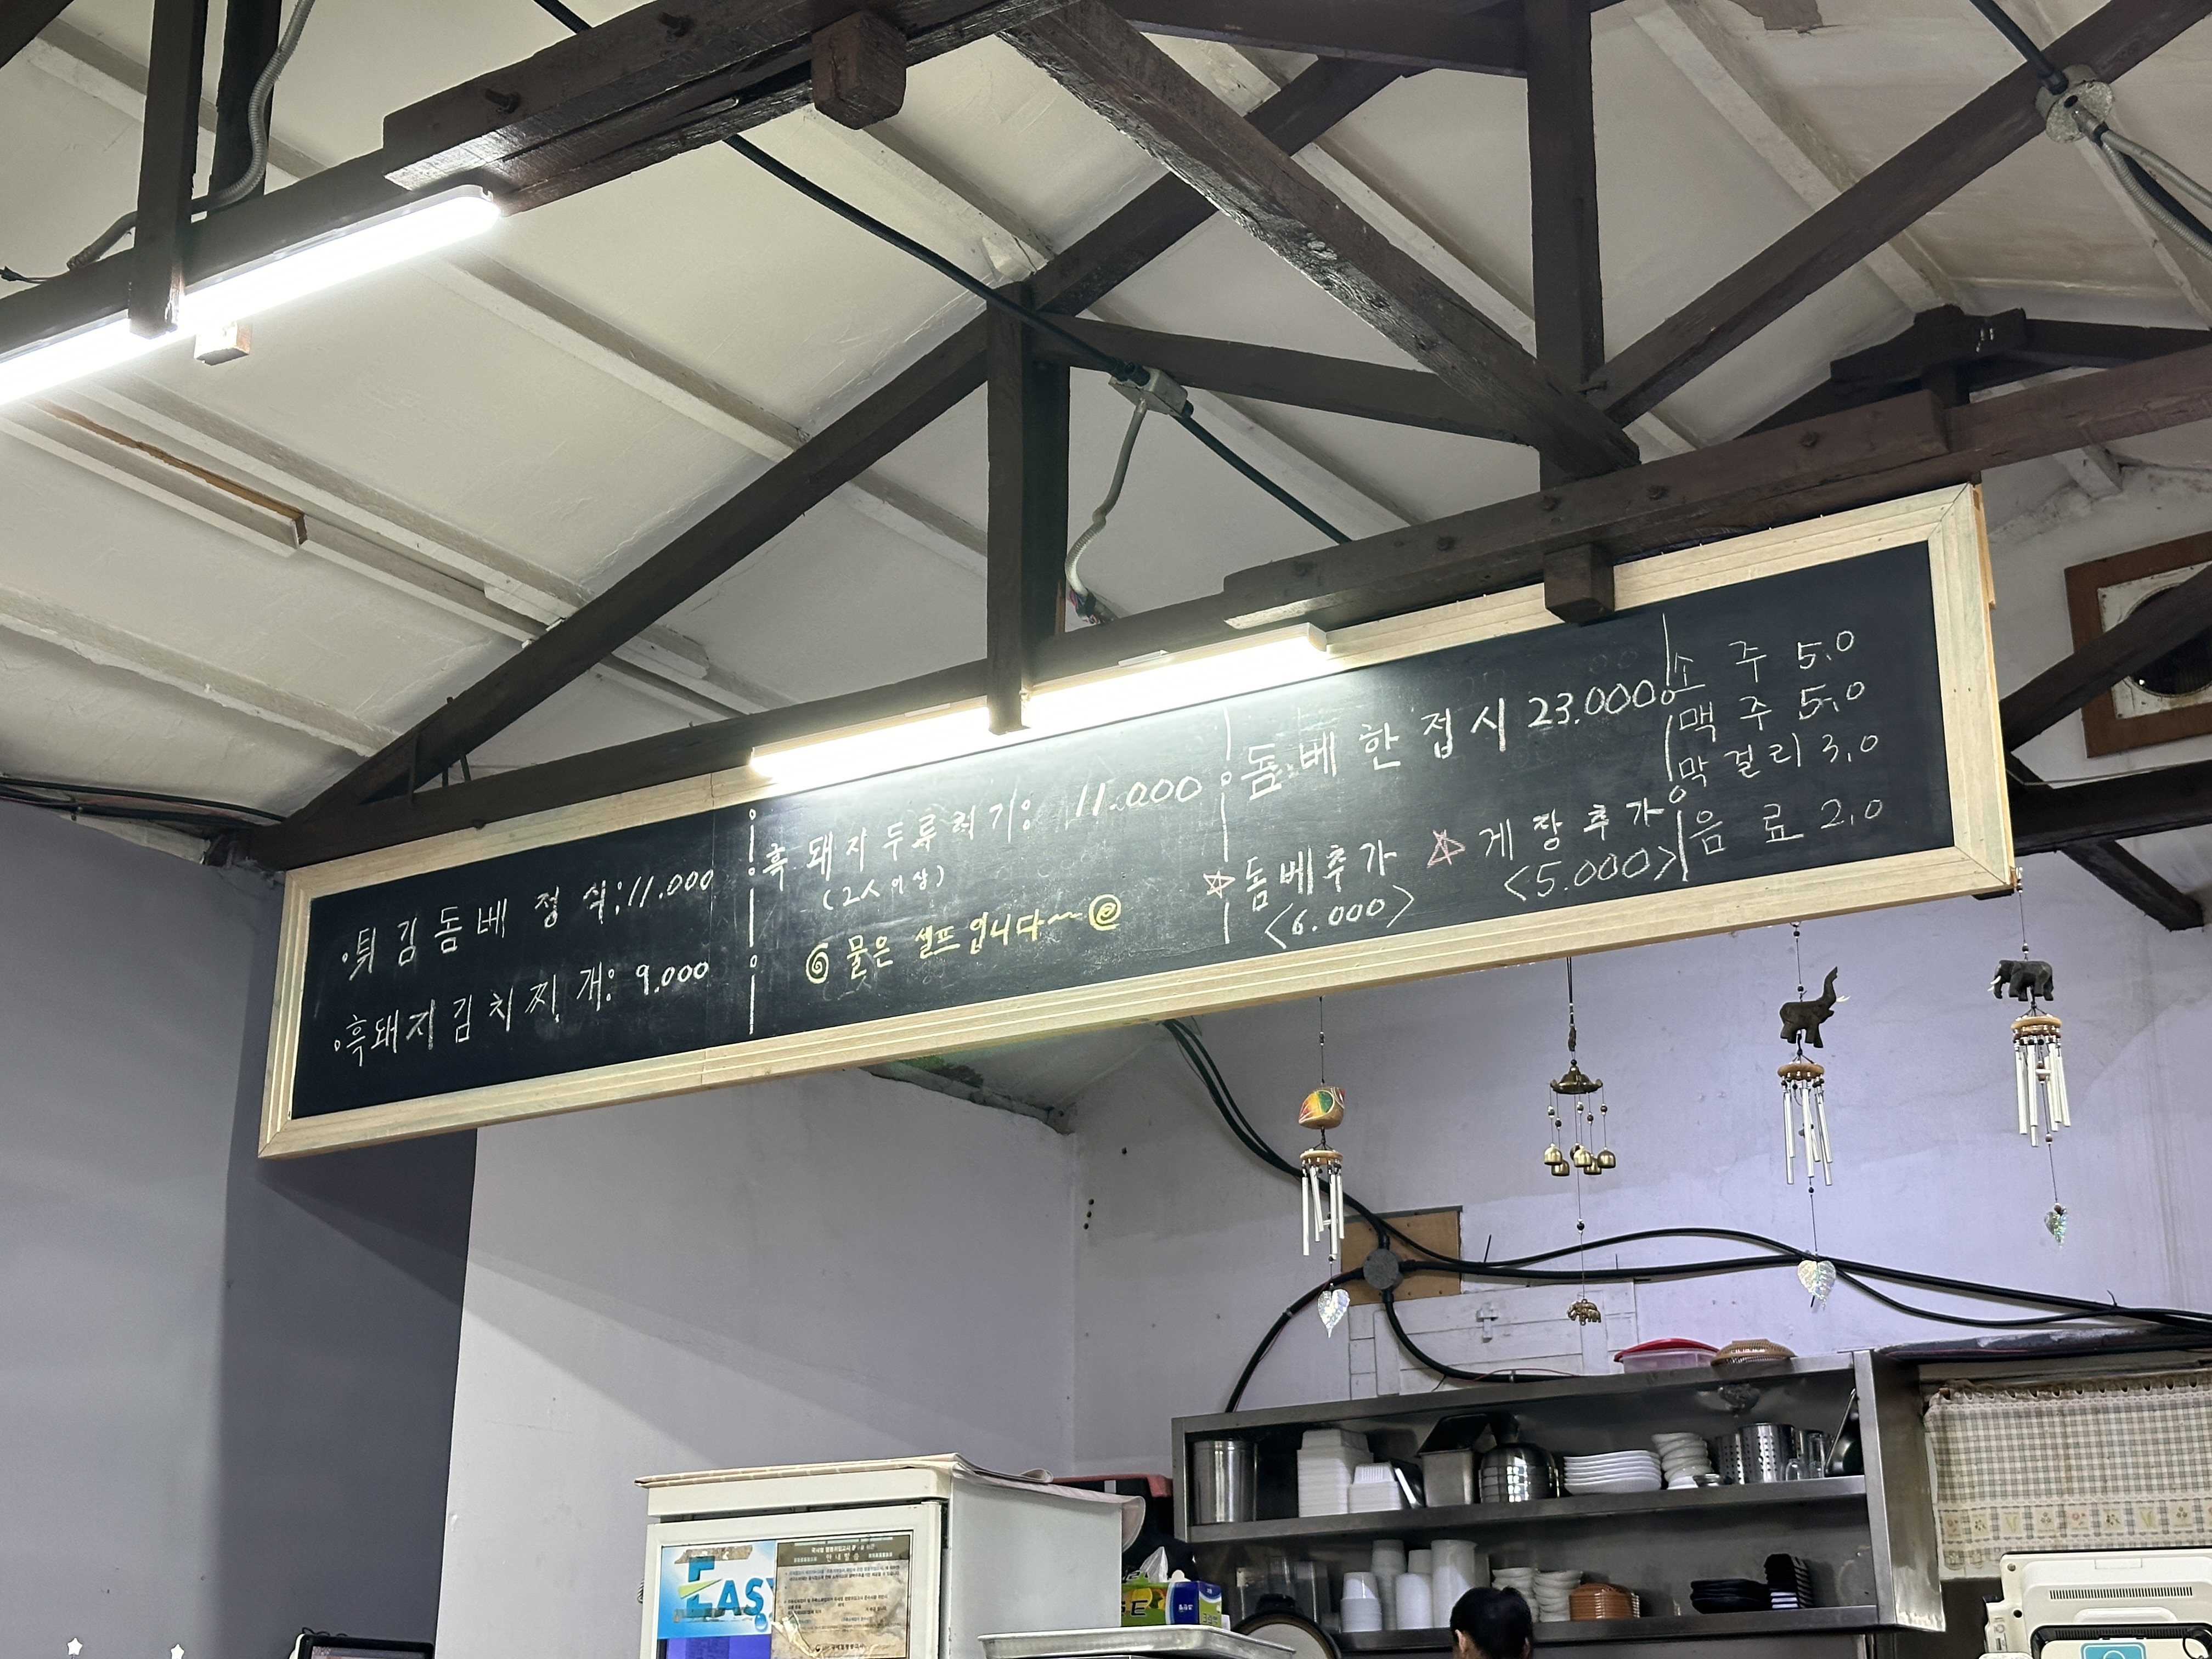 튀김돔베 정식: 11.000
흑돼지김치찌개: 9.000
흑돼지두루치기: 11.000
(2人이상)
물은 셀프입니다~~
돔베한접시 23.000
☆돔베추가
<6.000>
☆게장추가
<5.000>
소주 5.0
맥주 5.0
막걸리 3.0
음료 2.0
EASY
안내말씀